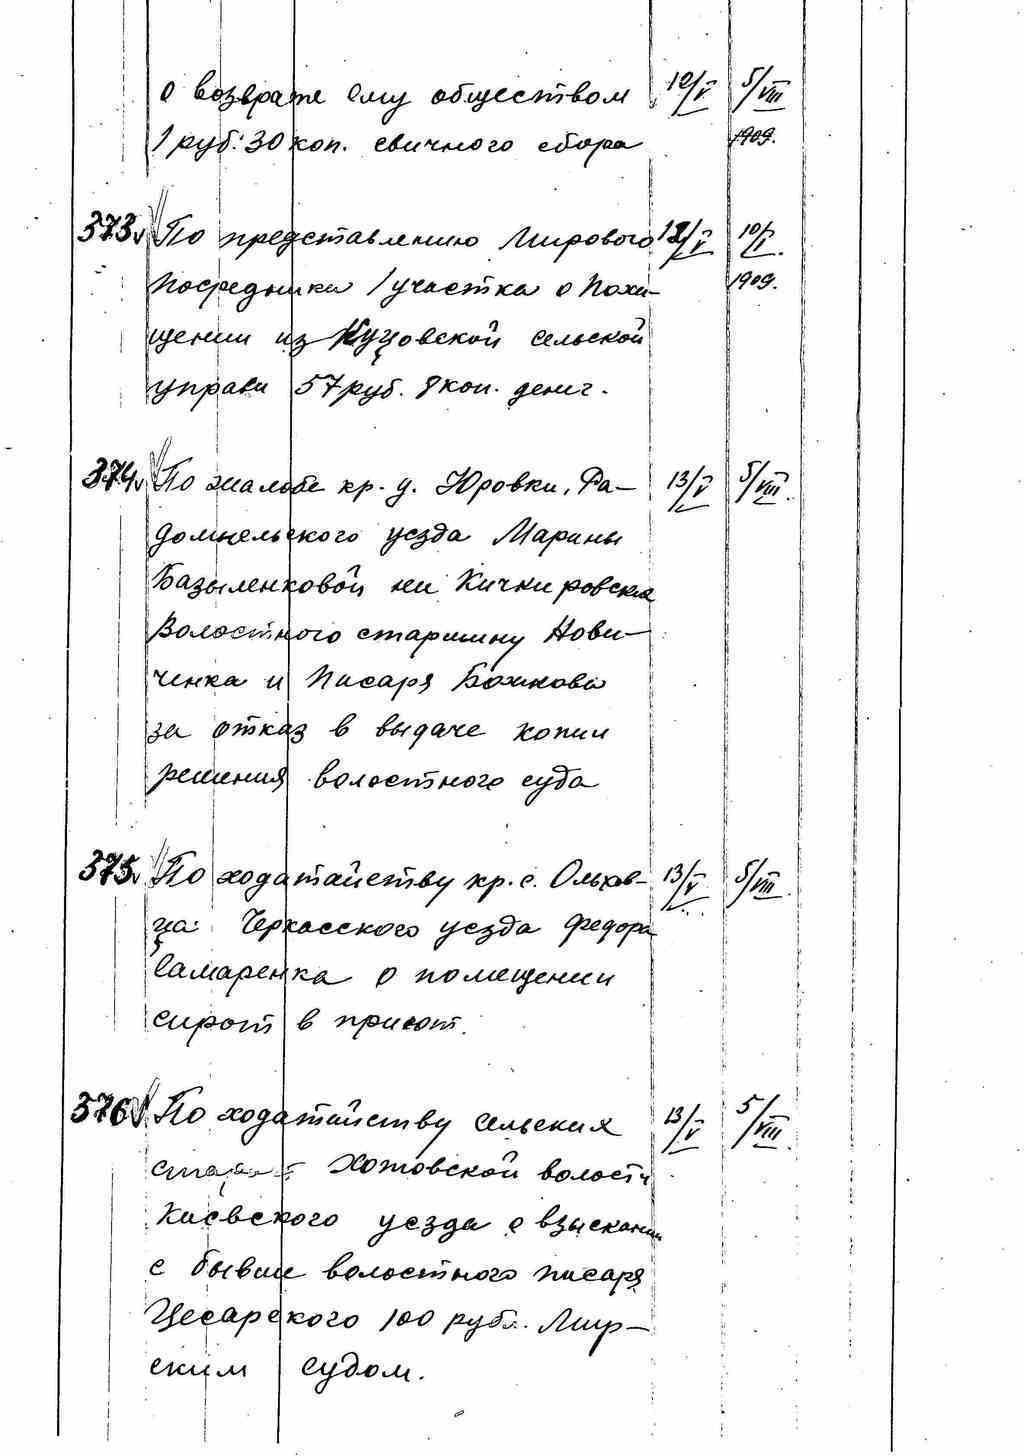 о возврате ему обществом 12/V 5/VIII
1 руб. 30 коп. свичного сбора 1909.
373 По представлению Мирового 12/V 10/I
Посредника 1 участка о Похи- 1909.
щении из сельской
управи 57 руб. 8 коп. дениг.
374 По жалобе кр. д. Юровки, Ра- 13/V 5/VIII
домысльского уезда Марины
Базыленковой на Кичкировская
Волостного старшину Нови-
ченка и Писаря Божкова
за отказ в выдаче копии
решения волостного суда
375 По ходатайству кр. с. Ольхов- 13/V 5/VIII
ца Черкасского уезда Федора
Самаренка о помещении
сирот в приют.
376 По ходатайству сельских 13/V 5/VIII
Хотовской волости
Киевского уезда о взыскании
с бывше волостного писаря
Цесарского 100 рубл. Мир-
ским судом.